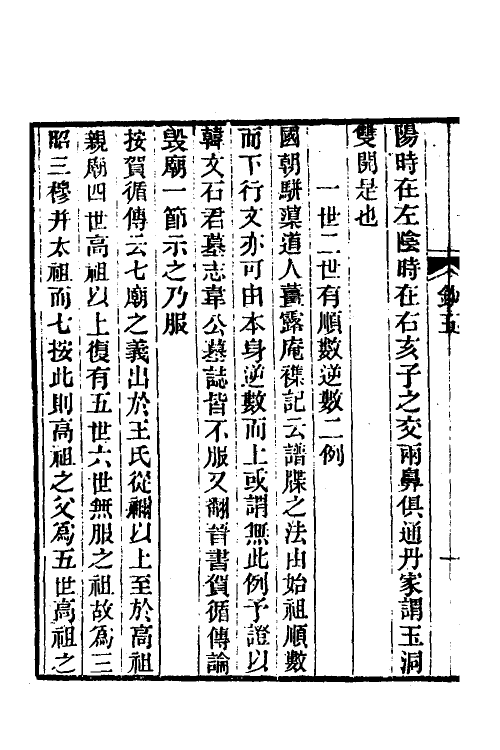 陽時在左陰時在右亥子之交兩鼻俱通丹家謂玉洞
雙開是也
一世二世有順數逆數二例
國朝駢蕖道人薑露庵襍記云譜牒之法由始祖順數
而下行文亦可由本身逆數而上或謂無此例予證以
韓文石君墓志韋公墓誌皆不服又翻晉書賀循傳論
毁廟一節示之乃服
按賀循傳云七廟之義出於王氏從禰以上至於高祖
親廟四世高祖以上復有五世六世無服之祖故爲三
昭三穆并太祖而七按此則高祖之父爲五世高祖之
鈔五
一